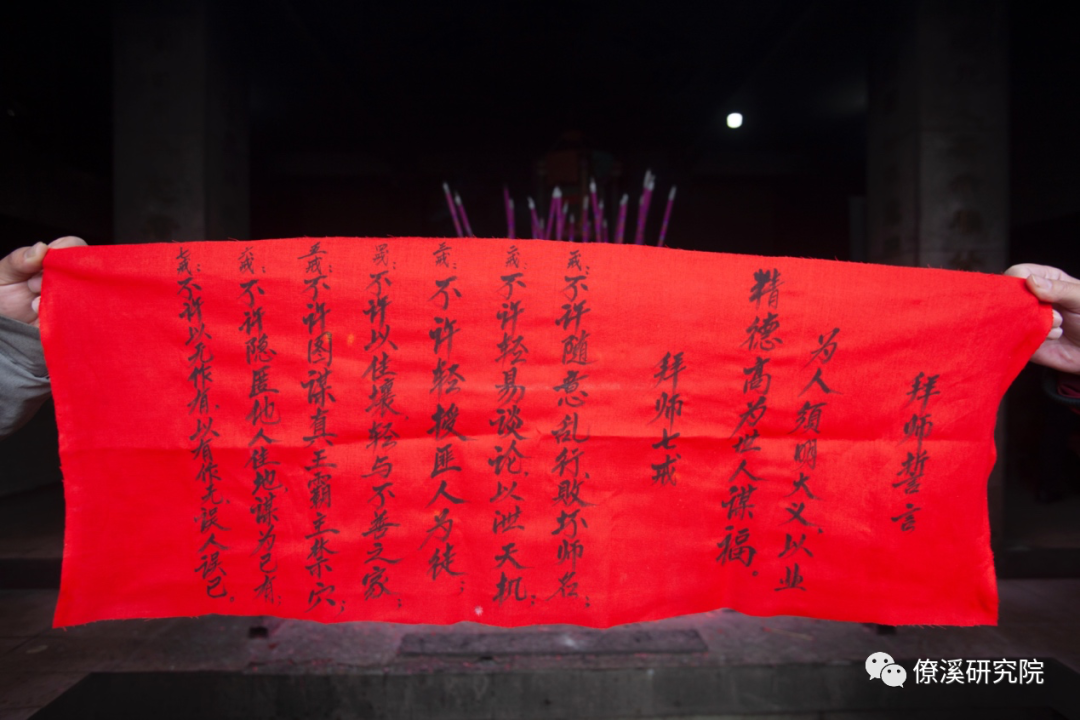 拜师誓言
为人须明大义、以业
精德高为世人谋福。
拜师七戒
一戒：不许随意乱行、败坏师名；
二戒：不许轻易谈论、以泄天机；
三戒：不许轻授匪人为徒；
四戒：不许以佳壤、轻与不善之家；
五戒：不许图谋真王霸主禁穴；
六戒：不许隐匿他人佳地、谋为己有；
七戒：不许以无作有、以有作无误人误己。
僚溪研究院